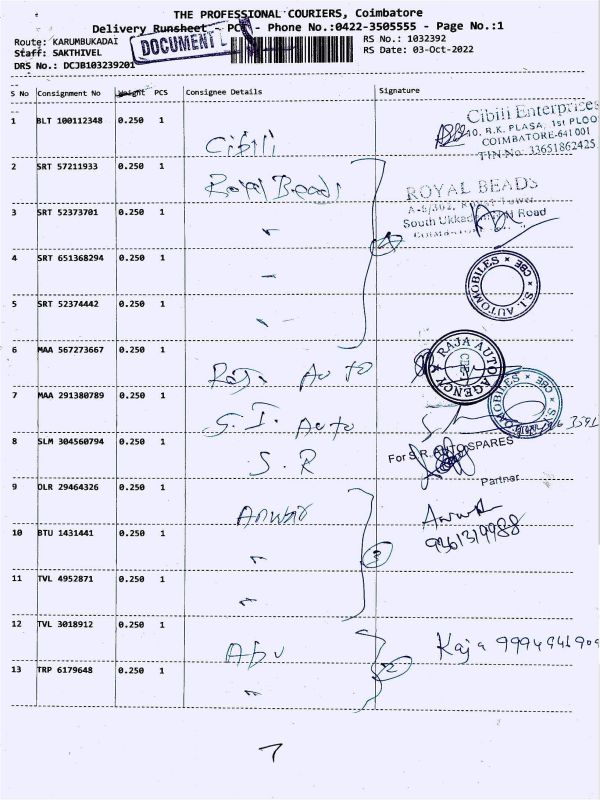 THE PROFESSIONAL COURIERS, Coimbatore
Delivery Runsheet - PC - Phone No.:0422-3505555 - Page No.:1
Route: KARUMBUKADAI RS No.: 1032392
Staff: SAKTHIVEL DOCUMENT RS Date: 03-Oct-2022
DRS No.: DCJB103239201
S No Consignment No Weight PCS Consignee Details Signature
1 BLT 100112348 0.250 1 Cibili Cibili Enterprises
R.K. PLASA, 1st FLOO
COIMBATORE-641 001
TIN No: 33651862425
2 SRT 57211933 0.250 1 Royal Beads ROYAL BEADS
3 SRT 52373701 0.250 1 〃 South Ukkad Road
4 SRT 651368294 0.250 1 〃 4
S.I. AUTOMOBILES * CBE *
5 SRT 52374442 0.250 1 〃
6 MAA 567273667 0.250 1 Raja Auto RAJA AUTO AGENCY
7 MAA 291380789 0.250 1 S.I. Auto
8 SLM 304560794 0.250 1 S.R For S.R. AUTO SPARES
Partner
9 DLR 29464326 0.250 1 Anwar Anwar
10 BTU 1431441 0.250 1 〃 3 9361319988
11 TVL 4952871 0.250 1 〃
12 TVL 3018912 0.250 1 Abu Kaja 9994946909
13 TRP 6179648 0.250 1 〃 2
7